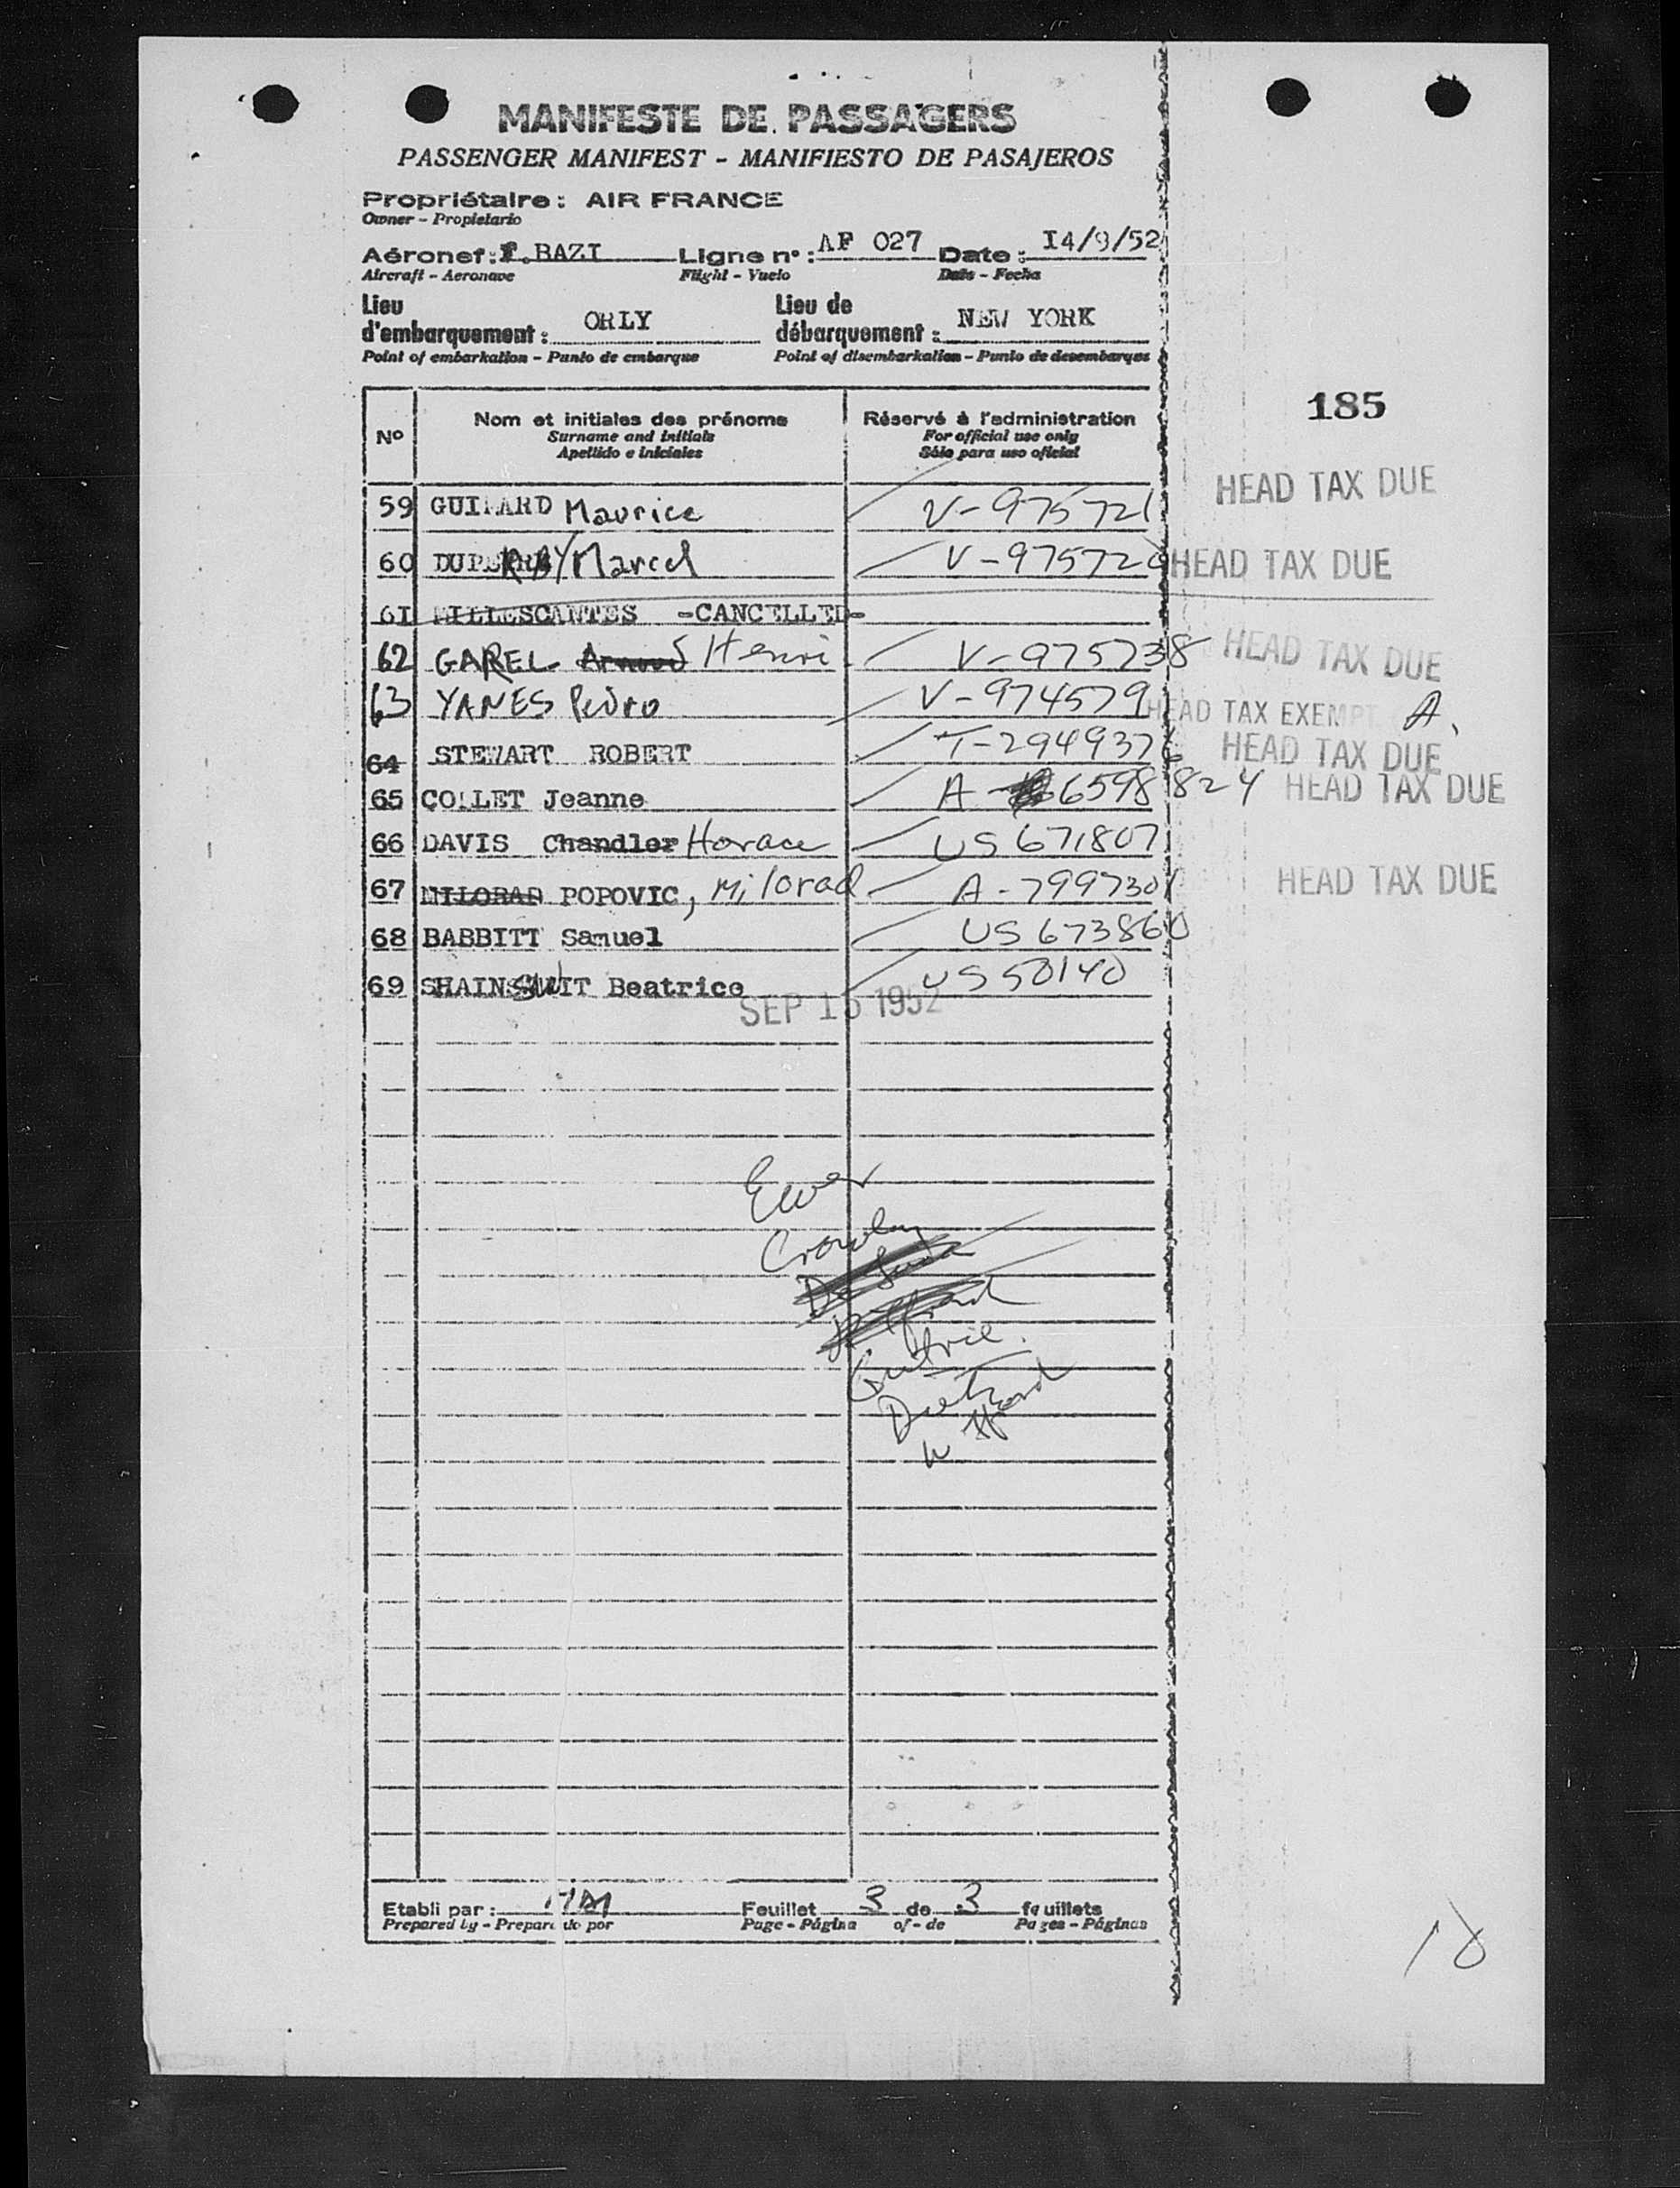 MANIFESTE DE PASSAGERS
PASSENGER MANIFEST - MANIFIESTO DE PASAJEROS
Propriétaire : AIR FRANCE
Owner - Propietario
Aéronef : F.BAZI Ligne n° : AF 027 Date : I4/9/52
Aircraft - Aeronave Flight - Vuelo Date - Fecha
Lieu d'embarquement : ORLY Lieu de débarquement : NEW YORK
Point of embarkation - Punto de embarque Point of disembarkation - Punto de desembarque
185
N° Nom et initiales des prénoms Réservé à l'administration
Surname and initials For official use only
Apellido e iniciales Sólo para uso oficial
59 GUIMARD Maurice V-975721 HEAD TAX DUE
60 Marcel V-975720 HEAD TAX DUE
6I MILLESCANTES -CANCELLED-
62 GAREL Arnoud Henri V-975738 HEAD TAX DUE
63 YANES Pedro V-974579 HEAD TAX EXEMPT A.
64 STEWART ROBERT T-2949376 HEAD TAX DUE
65 COLLET Jeanne A-6598824 HEAD TAX DUE
66 DAVIS Chandler Horace US 671807
67 MILORAD POPOVIC, Milorad A-7997301 HEAD TAX DUE
68 BABBITT Samuel US 673860
69 SHAINSWIT Beatrice US 50140
SEP 15 1952
Ewer
Crowley
Guthrie
Etabli par : Feuillet 3 de 3 feuillets
Prepared by - Preparado por Page - Página of - de Pages - Páginas
18